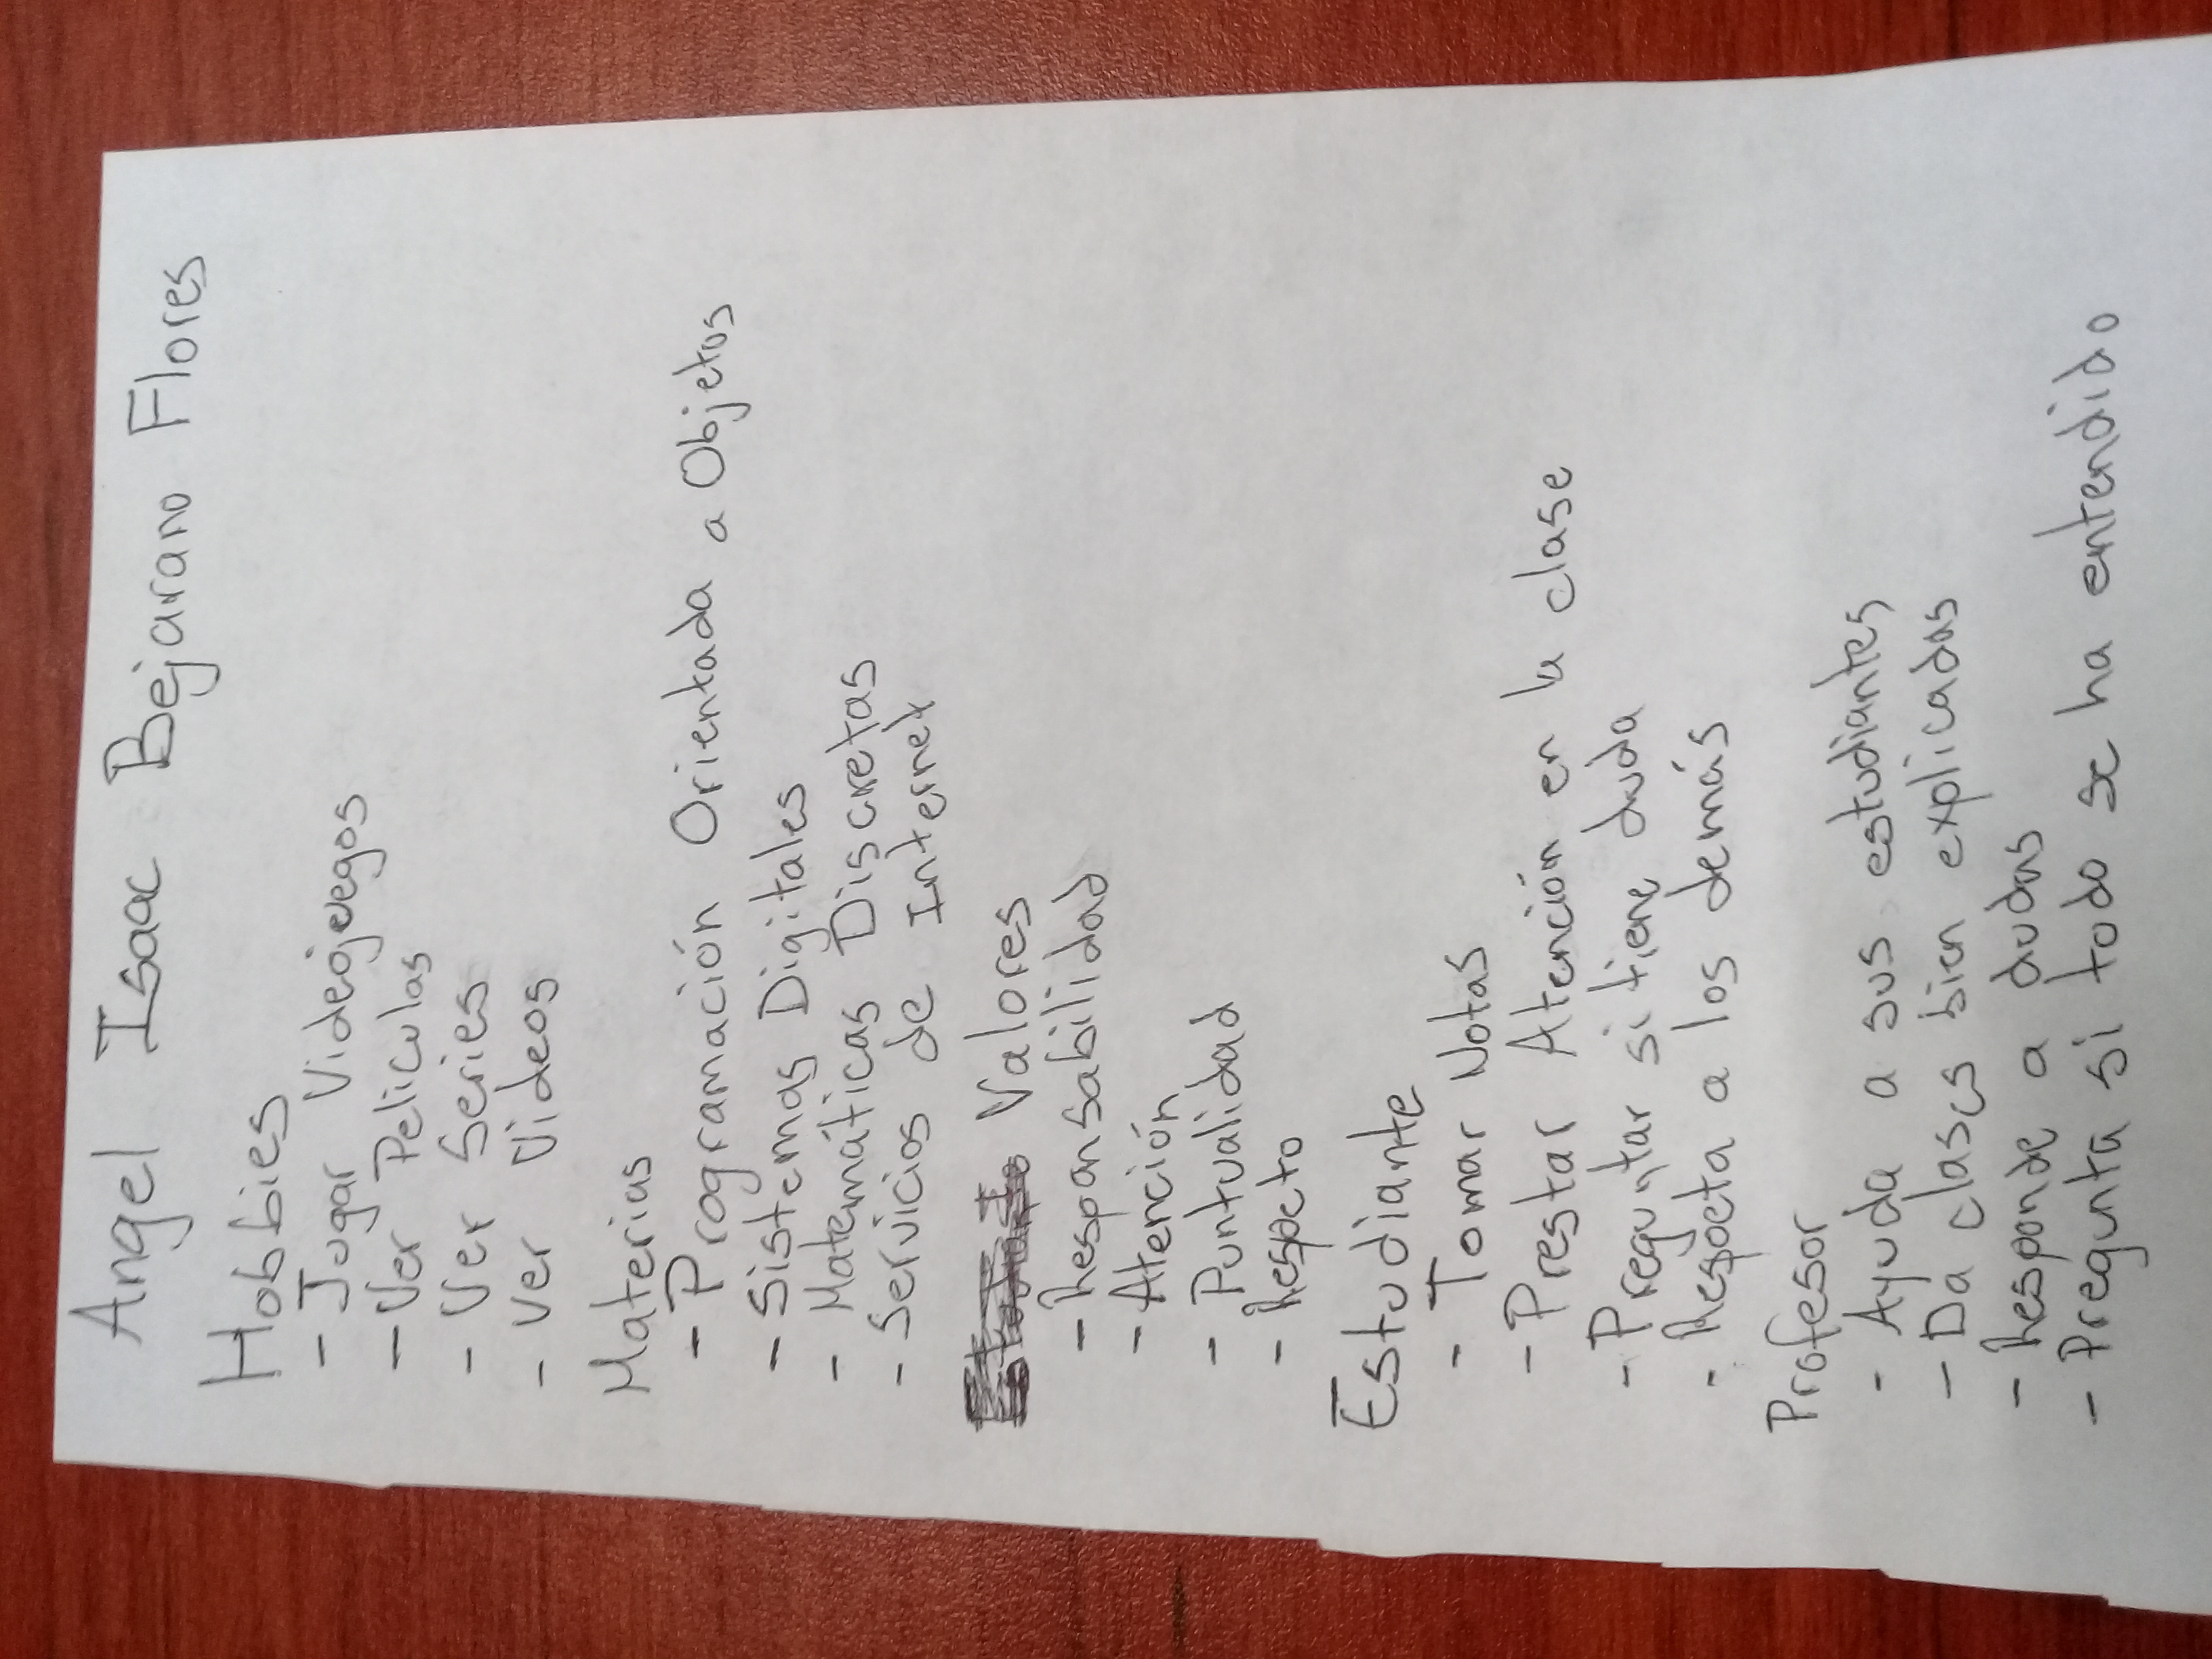 Angel Isaac Bejarano Flores
Hobbies
- Jugar Videojuegos
- Ver Peliculas
- Ver Series
- Ver Videos
Materias
- Programación Orientada a Objetos
- Sistemas Digitales
- Matemáticas Discretas
- Servicios de Internet
Valores
- Responsabilidad
- Atención
- Puntualidad
- Respeto
Estudiante
- Tomar Notas
- Prestar Atención en la clase
- Preguntar si tiene duda
- Respeta a los demás
Profesor
- Ayuda a sus estudiantes
- Da clases bien explicadas
- Responde a dudas
- Pregunta si todo se ha entendido